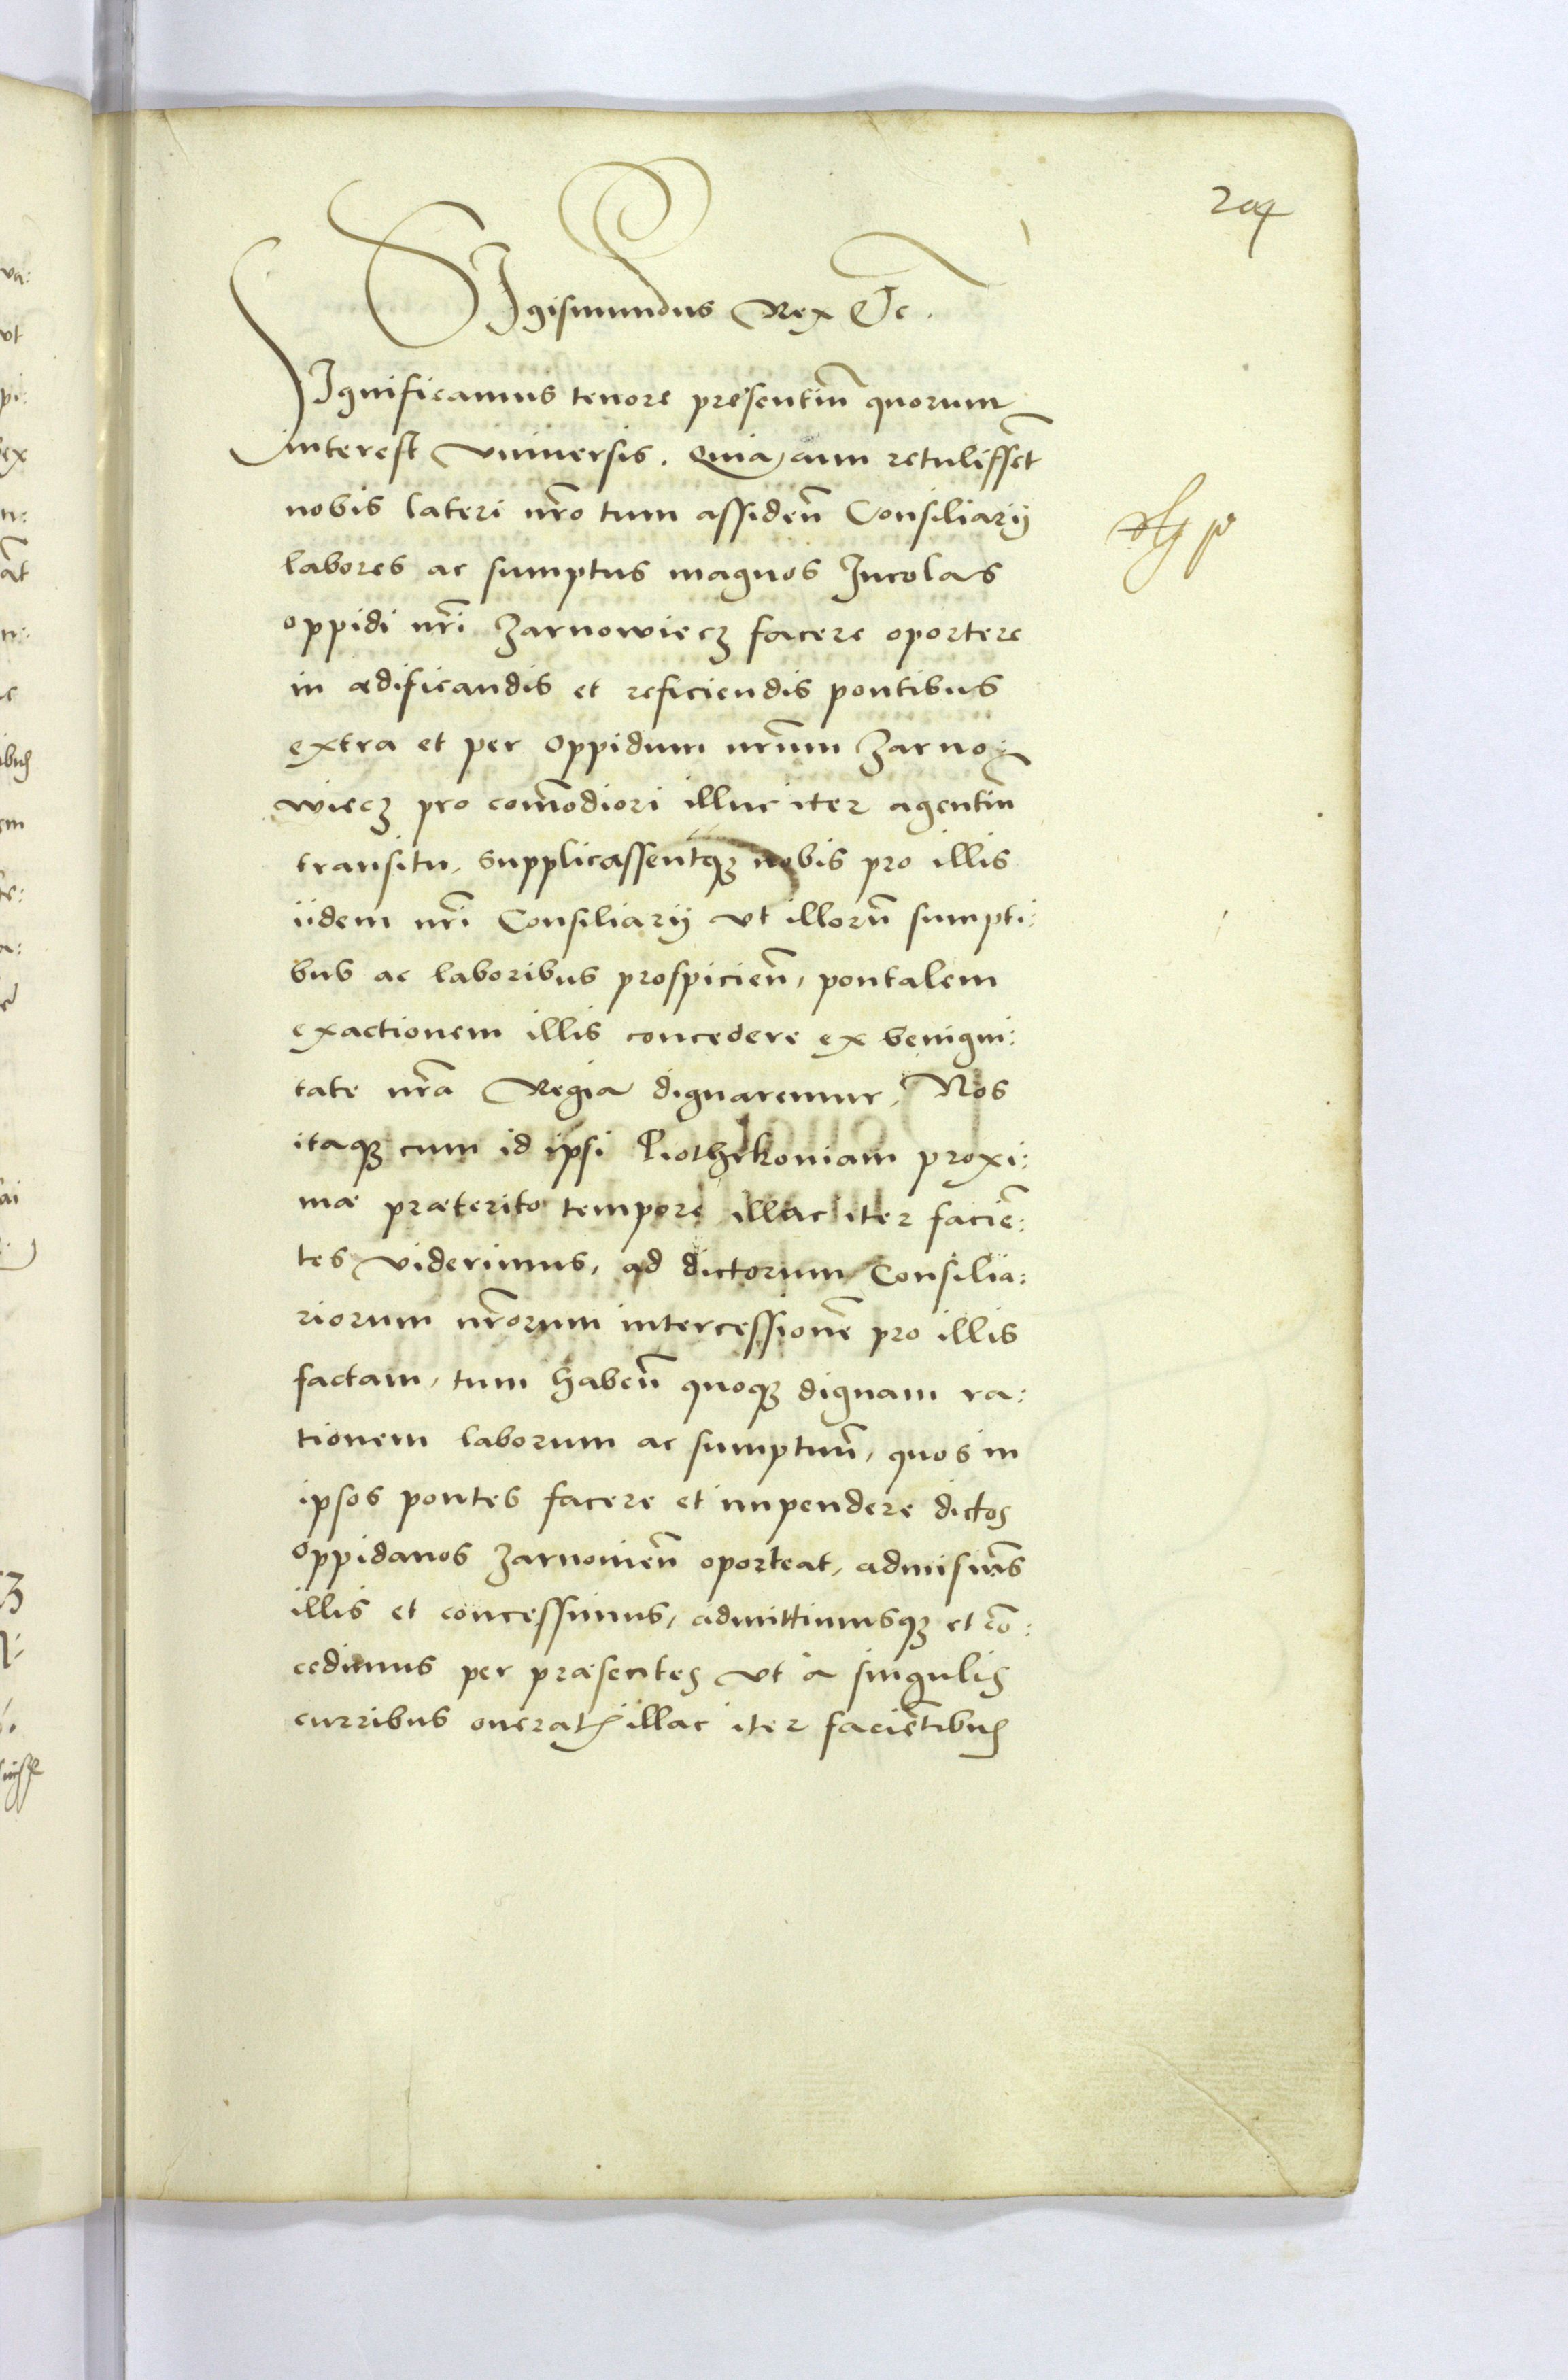 204
SIgismundus Rex Etc.
SIgnificamus tenore presentiũ quorum
interest Vniuersis. Quia cum retulissēt
nobis lateri nr̃o tum assideñ Consiliarij
labores ac sumptus magnos Incolas
oppidi nr̃i Zarnowiecz facere oportere
in ædificandis et reficiendis pontibus
extra et per oppidum nr̃um Zarno⸗
wiecz pro com̃odiori illuc iter agentiũ
transitu, supplicassentqꝫ nobis pro illis
iidem nr̃i Consiliarij vt illorũ sumpti:
bus ac laboribus prospicieñ, pontalem
exactionem illis concedere ex benigni:
tate nr̃a Regia dignaremur, Nos
itaqꝫ cum id ipsi Piothrkoviam proxi:
mæ præterito tempore illac iter faciē:
tes viderimus, ad dictorum Consilia:
riorum nr̃orum intercessionē pro illis
factam, tum habeñ quoqꝫ dignam ra:
tionem laborum ac sumptuũ, quos in
ipsos pontes facere et impendere dictos
oppidanos Zarnovieñ oporteat, admisim̃s
illis et concessimus, admittimusqꝫ et cõ:
cedimus per præsentes vt a singulis
curribus oneratis illac iter faciētibus